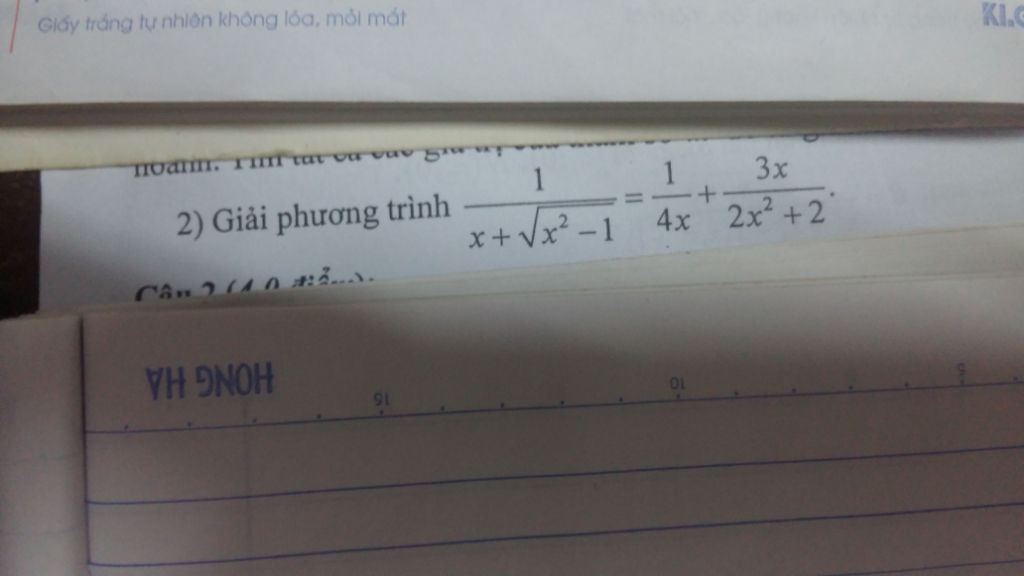 Giấy trắng tự nhiên không lóa, mỏi mắt
KI.
2) Giải phương trình \frac{1}{x+\sqrt{x^2-1}} = \frac{1}{4x} + \frac{3x}{2x^2+2}.
Câu 2 (4,0 điểm):
HONG HA
15 10 5